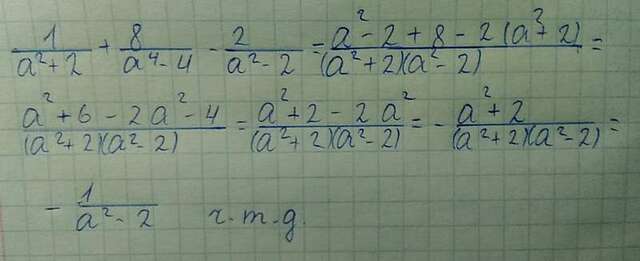 1/(a²+2) + 8/(a⁴-4) - 2/(a²-2) = (a²-2+8-2(a²+2))/((a²+2)(a²-2)) =
(a²+6-2a²-4)/((a²+2)(a²-2)) = (a²+2-2a²)/((a²+2)(a²-2)) = -(a²+2)/((a²+2)(a²-2)) =
-1/(a²-2) ч.т.д.